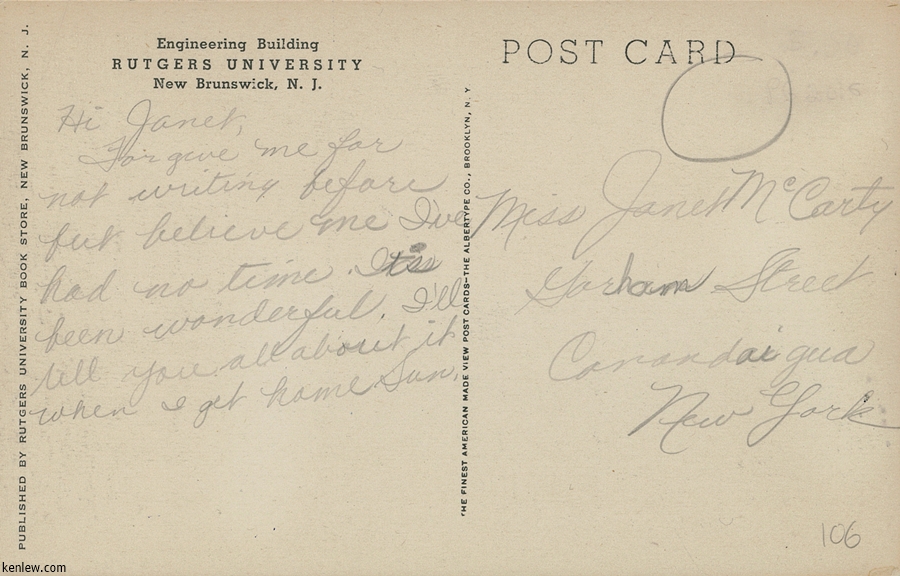 Engineering Building
RUTGERS UNIVERSITY
New Brunswick, N. J.
Hi Janet,
Forgive me for
not writing before
but believe me I've
had no time. It's
been wonderful. I'll
tell you all about it
when I get home Sun.
PUBLISHED BY RUTGERS UNIVERSITY BOOK STORE, NEW BRUNSWICK, N. J.
THE FINEST AMERICAN MADE VIEW POST CARDS—THE ALBERTYPE CO., BROOKLYN, N. Y
POST CARD
Miss Janet McCarty
Gorham Street
Canandaigua
New York
106
kenlew.com